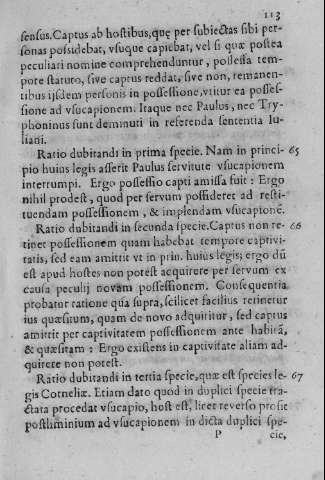 113
sensus. Captus ab hostibus, quę per subiectas sibi per-
sonas possidebat, vsuque capiebat, vel si quæ postea
peculiari nomine comprehenduntur, possessa tem-
pore statuto, sive captus reddat, sive non, remanen-
tibus ijsdem personis in possessione, vtitur ea posses-
sione ad vsucapionem. Itaque nec Paulus, nec Try-
phoninus sunt deminuti in referenda sententia Iu-
liani.
Ratio dubitandi in prima specie. Nam in princi- 65
pio huius legis asserit Paulus servitute vsucapionem
interrumpi. Ergo possessio capti amissa fuit: Ergo
nihil prodest, quod per servum possideret ad resti-
tuendam possessionem, & implendam vsucapionē.
Ratio dubitandi in secunda specie. Captus non re- 66
tinet possessionem quam habebat tempore captivi-
tatis, sed eam amittit vt in prin. huius legis; ergo dū
est apud hostes non potest acquirere per servum ex
causa peculij novam possessionem. Consequentia
probatur ratione qua supra, scilicet facilius retinetur
ius quæsitum, quam de novo adquiritur, sed captus
amittit per captivitatem possessionem ante habitā,
& quæsitam: Ergo existens in captivitate aliam ad-
quirere non potest.
Ratio dubitandi in tertia specie, quæ est species le- 67
gis Corneliæ. Etiam dato quod in duplici specie tra-
ctata procedat vsucapio, host est, licet reverso prosit
postliminium ad vsucapionem in dicta duplici spe-
P cie,